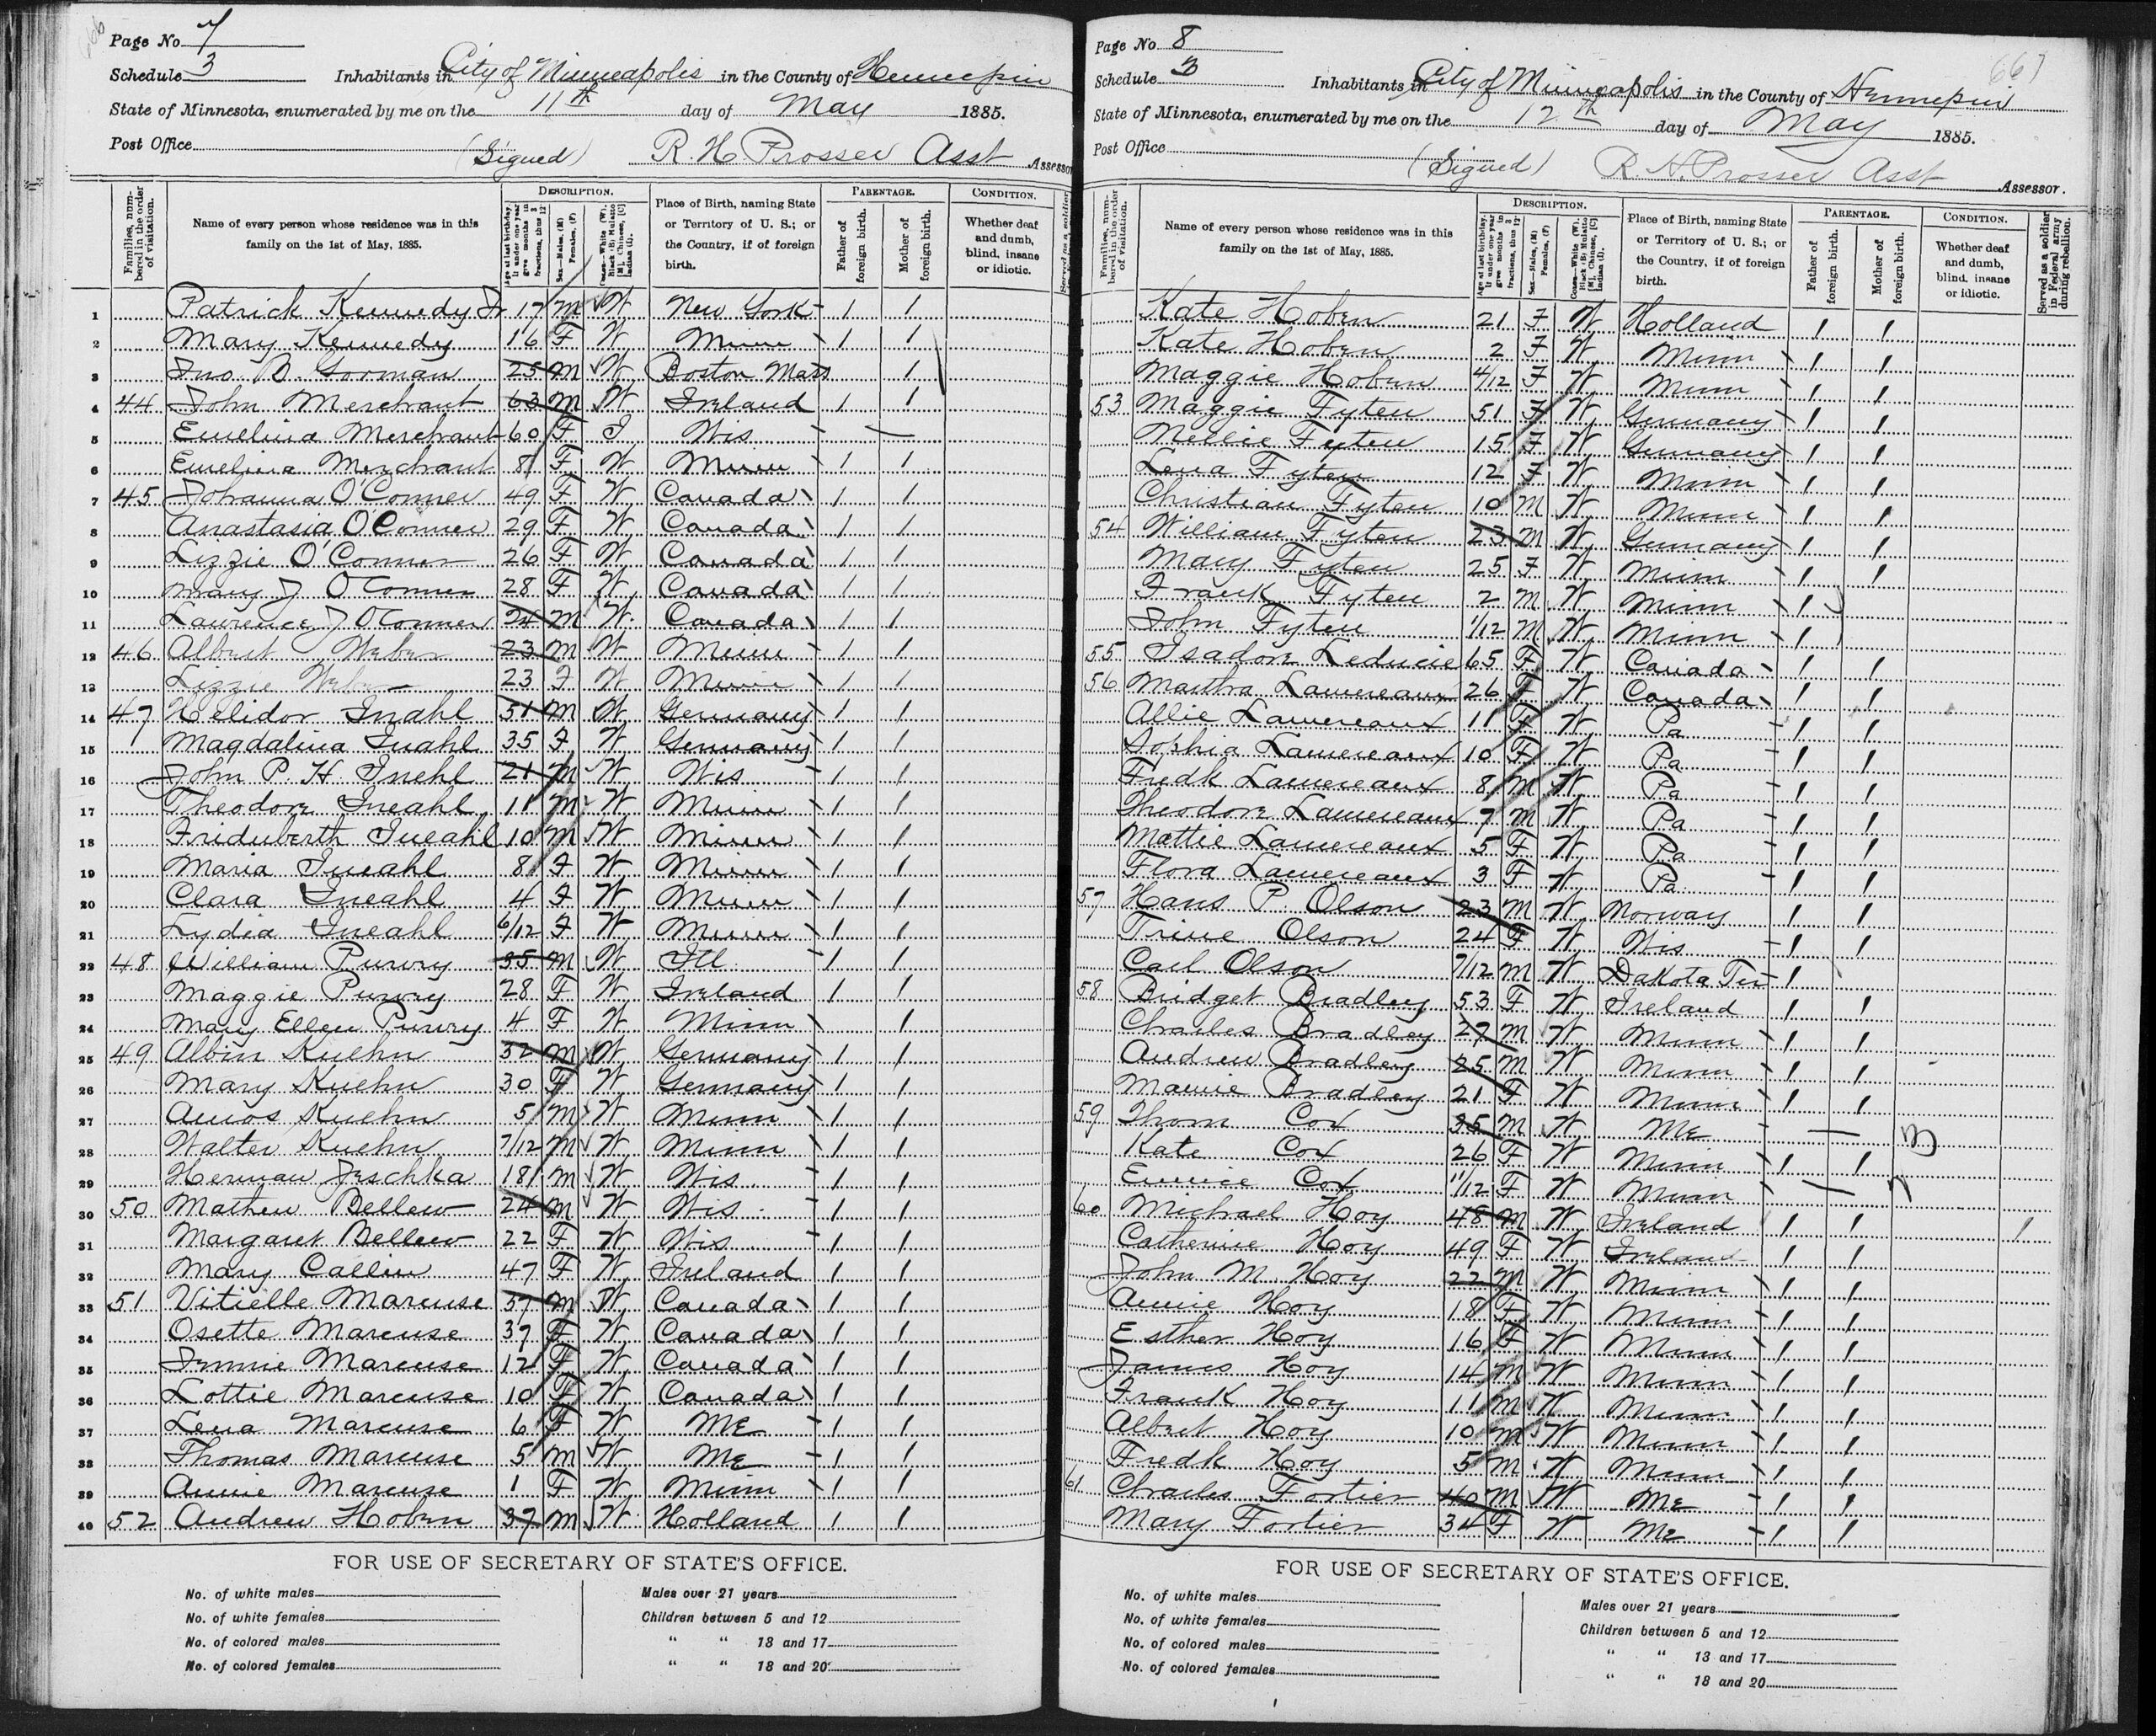 666
Page No. 7
Schedule 3 Inhabitants in City of Minneapolis in the County of Hennepin
State of Minnesota, enumerated by me on the 11th day of May 1885.
Post Office (Signed) R. H. Prosser Asst Assessor
Families, numbered in the order of visitation.
Name of every person whose residence was in this family on the 1st of May, 1885.
DESCRIPTION.
Place of Birth, naming State or Territory of U. S.; or the Country, if of foreign birth.
PARENTAGE.
Father of foreign birth.
Mother of foreign birth.
CONDITION.
Whether deaf and dumb, blind, insane or idiotic.
1 Patrick Kennedy Jr 17 M W New York - 1 1
2 Mary Kennedy 16 F W Minn \ 1 1
3 Jno. B. Gorman 25 M W Boston Mass 1
4 44 John Merchant 63 M W Ireland 1 1
5 Emelina Merchant 60 F I Wis - —
6 Emelina Merchant 8 F W Minn \ 1 1
7 45 Johanna O'Conner 49 F W Canada \ 1 1
8 Anastasia O'Conner 29 F W Canada \ 1 1
9 Lizzie O'Conner 26 F W Canada \ 1 1
10 Mary J O'Conner 28 F W Canada \ 1 1
11 Lawrence J O'Conner 24 M W Canada \ 1 1
12 46 Albert Weber 23 M W Minn \ 1 1
13 Lizzie Weber 23 F W Minn \ 1 1
14 47 Helidor Inahl 51 M W Germany 1 1
15 Magdalina Inahl 35 F W Germany 1 1
16 John P. H. Inehl 21 M W Wis - 1 1
17 Theodore Ineahl 11 M W Minn \ 1 1
18 Friduberth Ineahl 10 M W Minn \ 1 1
19 Maria Ineahl 8 F W Minn \ 1 1
20 Clara Ineahl 4 F W Minn \ 1 1
21 Lydia Ineahl 6/12 F W Minn \ 1 1
22 48 William Purvry 35 M W Ill - 1 1
23 Maggie Purvry 28 F W Ireland 1 1
24 Mary Ellen Purvry 4 F W Minn \ 1
25 49 Albin Kuehn 32 M W Germany 1 1
26 Mary Kuehn 30 F W Germany 1 1
27 Amos Kuehn 5 M W Minn \ 1 1
28 Walter Kuehn 7/12 M W Minn \ 1 1
29 Herman Jeschka 18 M W Wis - 1 1
30 50 Mathew Bellew 24 M W Wis - 1 1
31 Margaret Bellew 22 F W Wis - 1 1
32 Mary Callen 47 F W Ireland 1 1
33 51 Vitielle Marcuse 57 M W Canada \ 1 1
34 Osette Marcuse 37 F W Canada \ 1 1
35 Jennie Marcuse 12 F W Canada \ 1 1
36 Lottie Marcuse 10 F W Canada \ 1 1
37 Lena Marcuse 6 F W ME - 1 1
38 Thomas Marcuse 5 M W ME - 1 1
39 Annie Marcuse 1 F W Minn \ 1 1
40 52 Andrew Hoben 37 M W Holland 1 1
FOR USE OF SECRETARY OF STATE'S OFFICE.
No. of white males Males over 21 years
No. of white females Children between 5 and 12
No. of colored males " " 13 and 17
No. of colored females " " 18 and 20
667
Page No. 8
Schedule 3 Inhabitants in City of Minneapolis in the County of Hennepin
State of Minnesota, enumerated by me on the 12th day of May 1885.
Post Office (Signed) R. H. Prosser Asst Assessor.
Families, numbered in the order of visitation.
Name of every person whose residence was in this family on the 1st of May, 1885.
DESCRIPTION.
Place of Birth, naming State or Territory of U. S.; or the Country, if of foreign birth.
PARENTAGE.
Father of foreign birth.
Mother of foreign birth.
CONDITION.
Whether deaf and dumb, blind, insane or idiotic.
Served as a soldier in Federal army during rebellion.
Kate Hoben 21 F W Holland 1 1
Kate Hoben 2 F W Minn \ 1 1
Maggie Hoben 4/12 F W Minn \ 1 1
53 Maggie Fyten 51 F W Germany 1 1
Nellie Fyten 15 F W Germany 1 1
Lena Fyten 12 F W Minn \ 1 1
Christian Fyten 10 M W Minn \ 1 1
54 William Fyten 23 M W Germany 1 1
Mary Fyten 25 F W Minn \ 1 1
Frank Fyten 2 M W Minn \ 1
John Fyten 1/12 M W Minn \ 1
55 Isadore Leducie 65 F W Canada \ 1 1
56 Martha Lamereaux 26 F W Canada \ 1 1
Allie Lamereaux 11 F W Pa - 1 1
Sophia Lamereaux 10 F W Pa - 1 1
Fredk Lamereaux 8 M W Pa - 1 1
Theodore Lamereaux 7 M W Pa - 1 1
Mattie Lamereaux 5 F W Pa - 1 1
Flora Lamereaux 3 F W Pa - 1 1
57 Hans P. Olson 23 M W Norway 1 1
Trine Olson 24 F W Wis - 1 1
Carl Olson 7/12 M W Dakota Ter - 1
58 Bridget Bradley 53 F W Ireland 1 1
Charles Bradley 27 M W Minn \ 1 1
Andrew Bradley 25 M W Minn \ 1 1
Mamie Bradley 21 F W Minn \ 1 1
59 Thom Cox 35 M W ME - —
Kate Cox 26 F W Minn \ 1 1
Eunice Cox 11/12 F W Minn \ —
60 Michael Hoy 48 M W Ireland 1 1 1
Catherine Hoy 49 F W Ireland 1 1
John M. Hoy 22 M W Minn \ 1 1
Annie Hoy 18 F W Minn \ 1 1
Esther Hoy 16 F W Minn \ 1 1
James Hoy 14 M W Minn \ 1 1
Frank Hoy 11 M W Minn \ 1 1
Albert Hoy 10 M W Minn \ 1 1
Fredk Hoy 5 M W Minn \ 1 1
61 Charles Fortier 40 M W ME - 1 1
Mary Fortier 34 F W ME - 1 1
FOR USE OF SECRETARY OF STATE'S OFFICE.
No. of white males Males over 21 years
No. of white females Children between 5 and 12
No. of colored males " " 13 and 17
No. of colored females " " 18 and 20